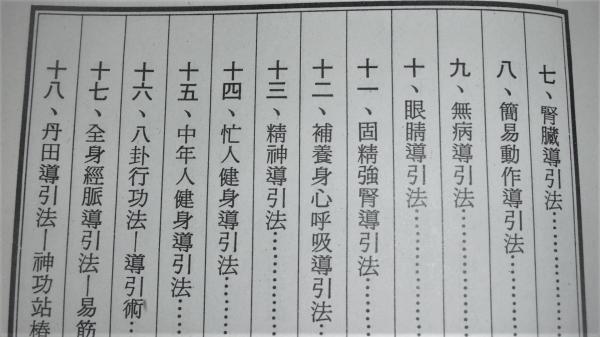 七、腎臟導引法………
八、簡易動作導引法……
九、無病導引法…………
十、眼睛導引法…………
十一、固精強腎導引法……
十二、補養身心呼吸導引法…
十三、精神導引法…………
十四、忙人健身導引法……
十五、中年人健身導引法……
十六、八卦行功法－導引術…
十七、全身經脈導引法－易筋
十八、丹田導引法－神功站樁